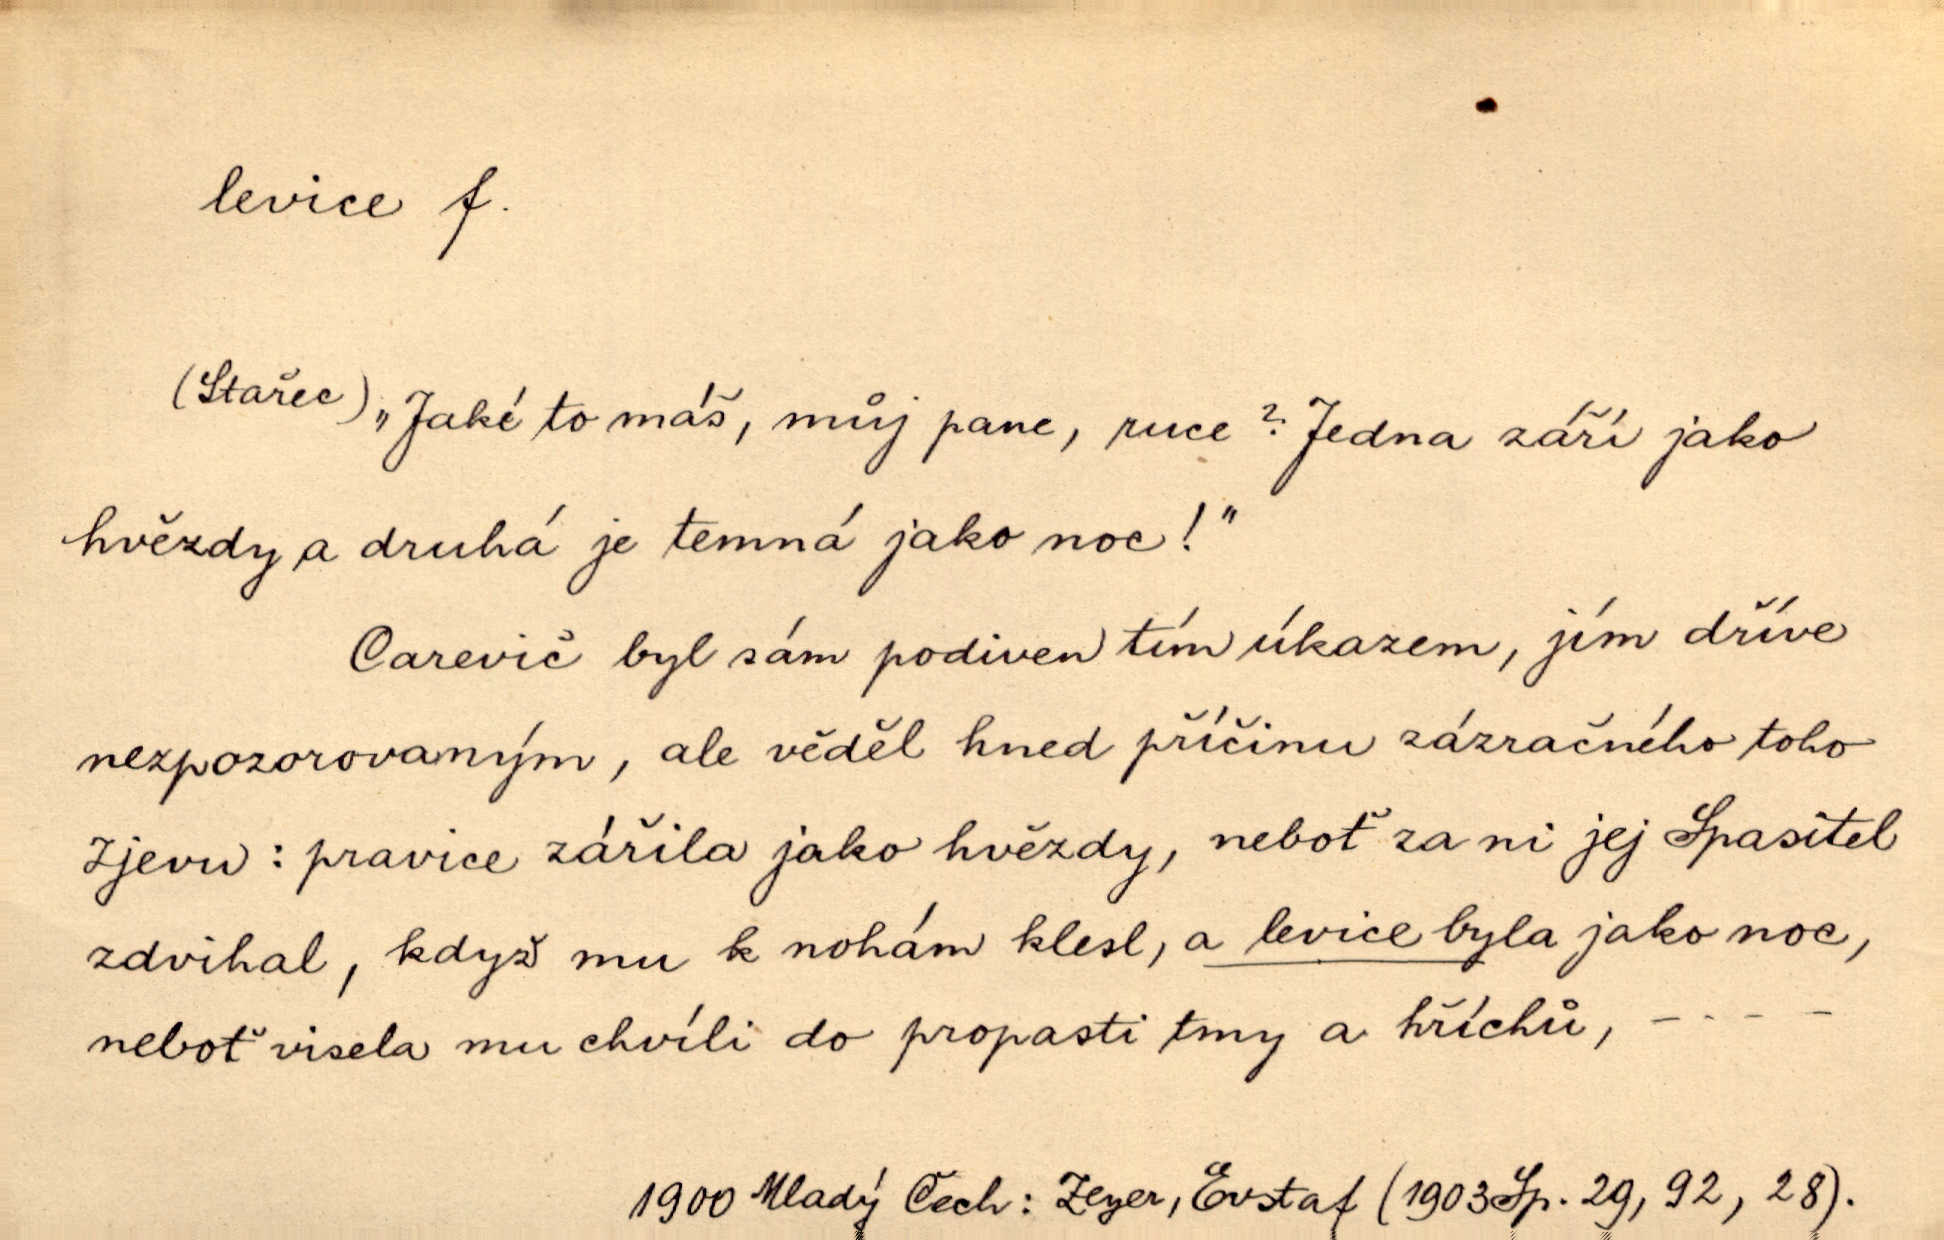 levice f.
(Stařec) „Jaké to máš, můj pane, ruce? Jedna září jako
hvězdy a druhá je temná jako noc!"
Carevič byl sám podiven tím úkazem, jím dříve
nezpozorovaným, ale věděl hned příčinu zázračného toho
zjevu: pravice zářila jako hvězdy, neboť za ni jej Spasitel
zdvihal, když mu k nohám klesl, a levice byla jako noc,
neboť visela mu chvíli do propasti tmy a hříchů, - - - -
1900 Mladý Čech: Zeyer, Evstaf (1903 Sp. 29, 92, 28).